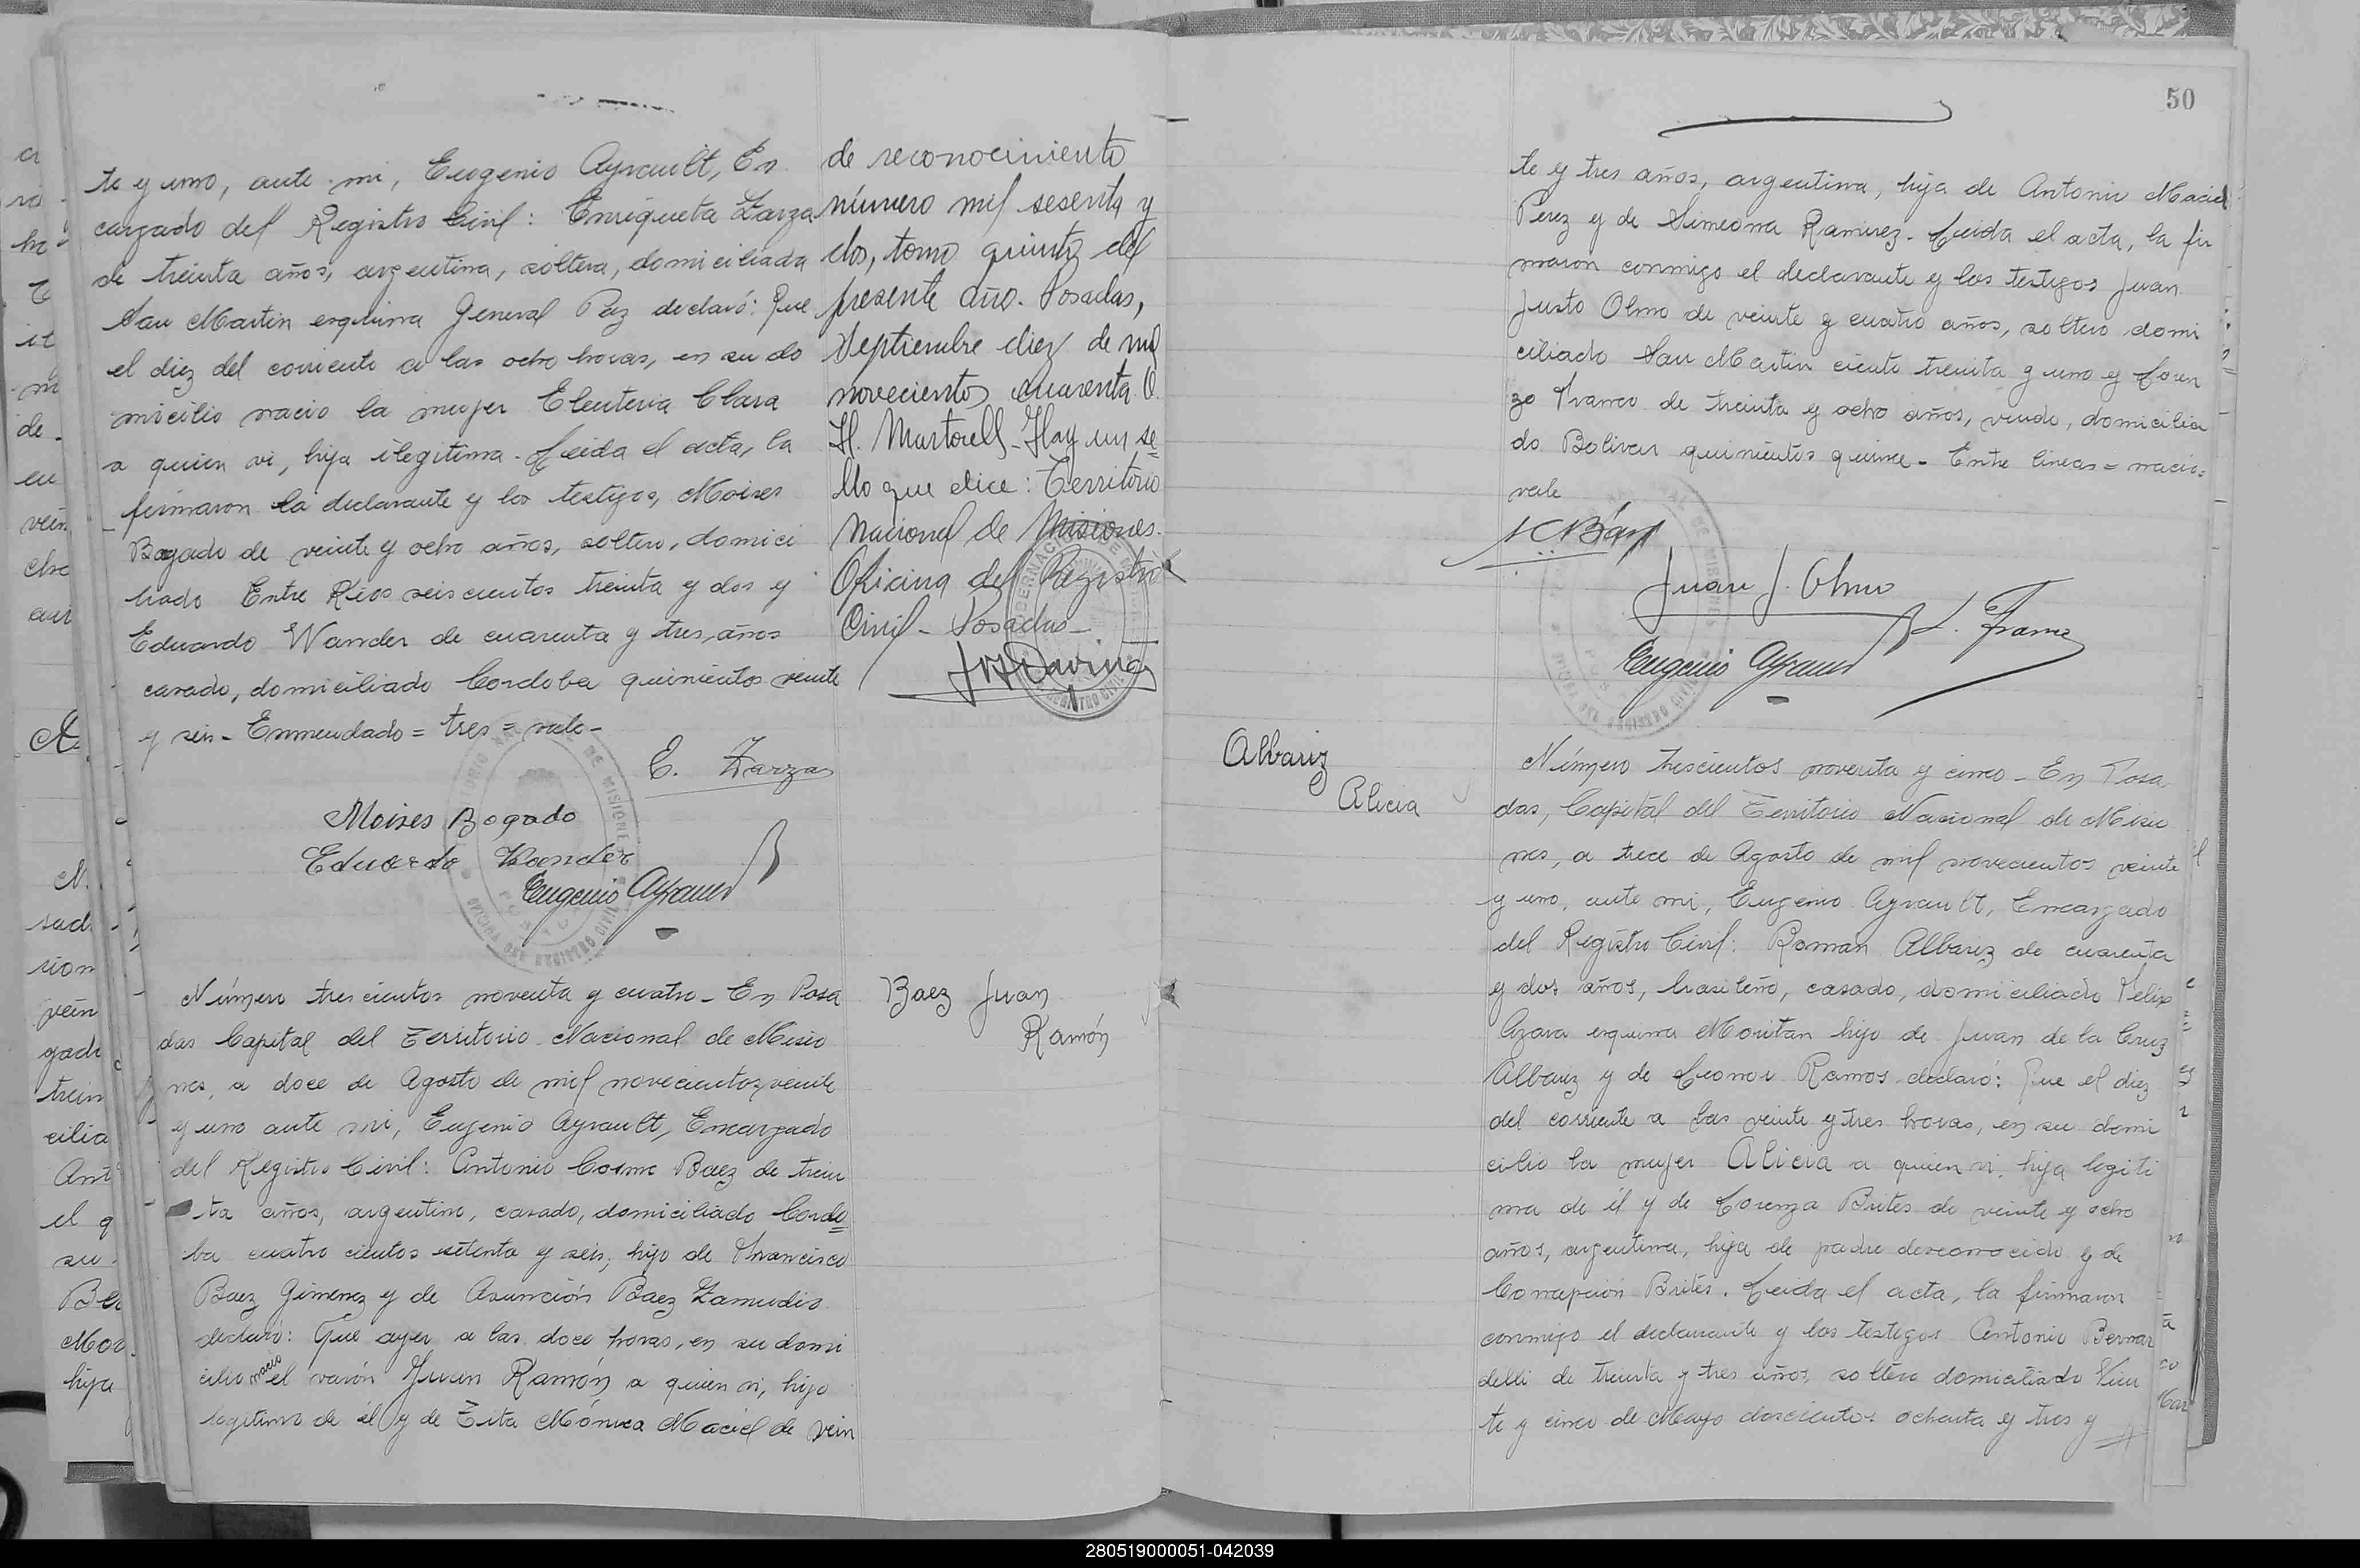 te y uno, ante mi, Eugenio Ayrault, En
cargado del Registro Civil: Enriqueta Zarza
de treinta años, argentina, soltera, domiciliada
San Martin esquina General Paz declaró: Que
el diez del corriente a las ocho horas, en su do
micilio nacio la mujer Eleuteria Clara
a quien vi, hija ilegitima. Leida el acta, la
firmaron la declarante y los testigos, Moises
Bogado de veinte y ocho años, soltero, domici
liado Entre Rios seiscientos treinta y dos y
Eduardo Wander de cuarenta y tres años
casado, domiciliado Cordoba quinientos veinte
y seis - Enmendado = tres = vale -
E. Zarza
Moises Bogado
Eduardo Wander
Eugenio Ayrault
de reconocimiento
número mil sesenta y
dos, tomo quinto del
presente año. Posadas,
Septiembre diez de mil
novecientos cuarenta. O.
H. Martorell - Hay un se
llo que dice: Territorio
Nacional de Misiones.
Oficina del Registro
Civil - Posadas -
Número trescientos noventa y cuatro - En Posa
das Capital del Territorio Nacional de Misio
nes, a doce de Agosto de mil novecientos veinte
y uno ante mi, Eugenio Ayrault, Encargado
del Registro Civil: Antonio Cosme Baez de trein
ta años, argentino, casado, domiciliado Cordo
ba cuatro cientos setenta y seis, hijo de Francisco
Baez Gimenez y de Asunción Baez Zamudio
declaró: Que ayer a las doce horas, en su domi
cilio nacio el varón Juan Ramón a quien vi, hijo
legitimo de él y de Zita Mónica Maciel de vein
Baez Juan
Ramón
50
te y tres años, argentina, hija de Antonio Maciel
Perez y de Simeona Ramirez - Leida el acta, la fir
maron conmigo el declarante y los testigos Juan
Justo Olmo de veinte y cuatro años, soltero domi
ciliado San Martin ciento treinta y uno y Loren
zo Franco de treinta y ocho años, viudo, domicilia
do Bolivar quinientos quince - Entre lineas = nacio =
vale
Juan J. Olmo
L. Franco
Eugenio Ayrault
Albariz
Alicia
Número trescientos noventa y cinco - En Posa
das, Capital del Territorio Nacional de Misio
nes, a trece de Agosto de mil novecientos veinte
y uno, ante mi, Eugenio Ayrault, Encargado
del Registro Civil: Roman Albariz de cuarenta
y dos años, brasileño, casado, domiciliado Felix
Azara esquina Moritan hijo de Juan de la Cruz
Albariz y de Leonor Ramos declaró: Que el diez
del corriente a las veinte y tres horas, en su domi
cilio la mujer Alicia a quien vi, hija legiti
ma de él y de Lorenza Brites de veinte y ocho
años, argentina, hija de padre desconocido y de
Concepción Brites. Leida el acta, la firmaron
conmigo el declarante y los testigos Antonio Bernar
delli de treinta y tres años, soltero domiciliado Vein
te y cinco de Mayo doscientos ochenta y tres y
280519000051-042039